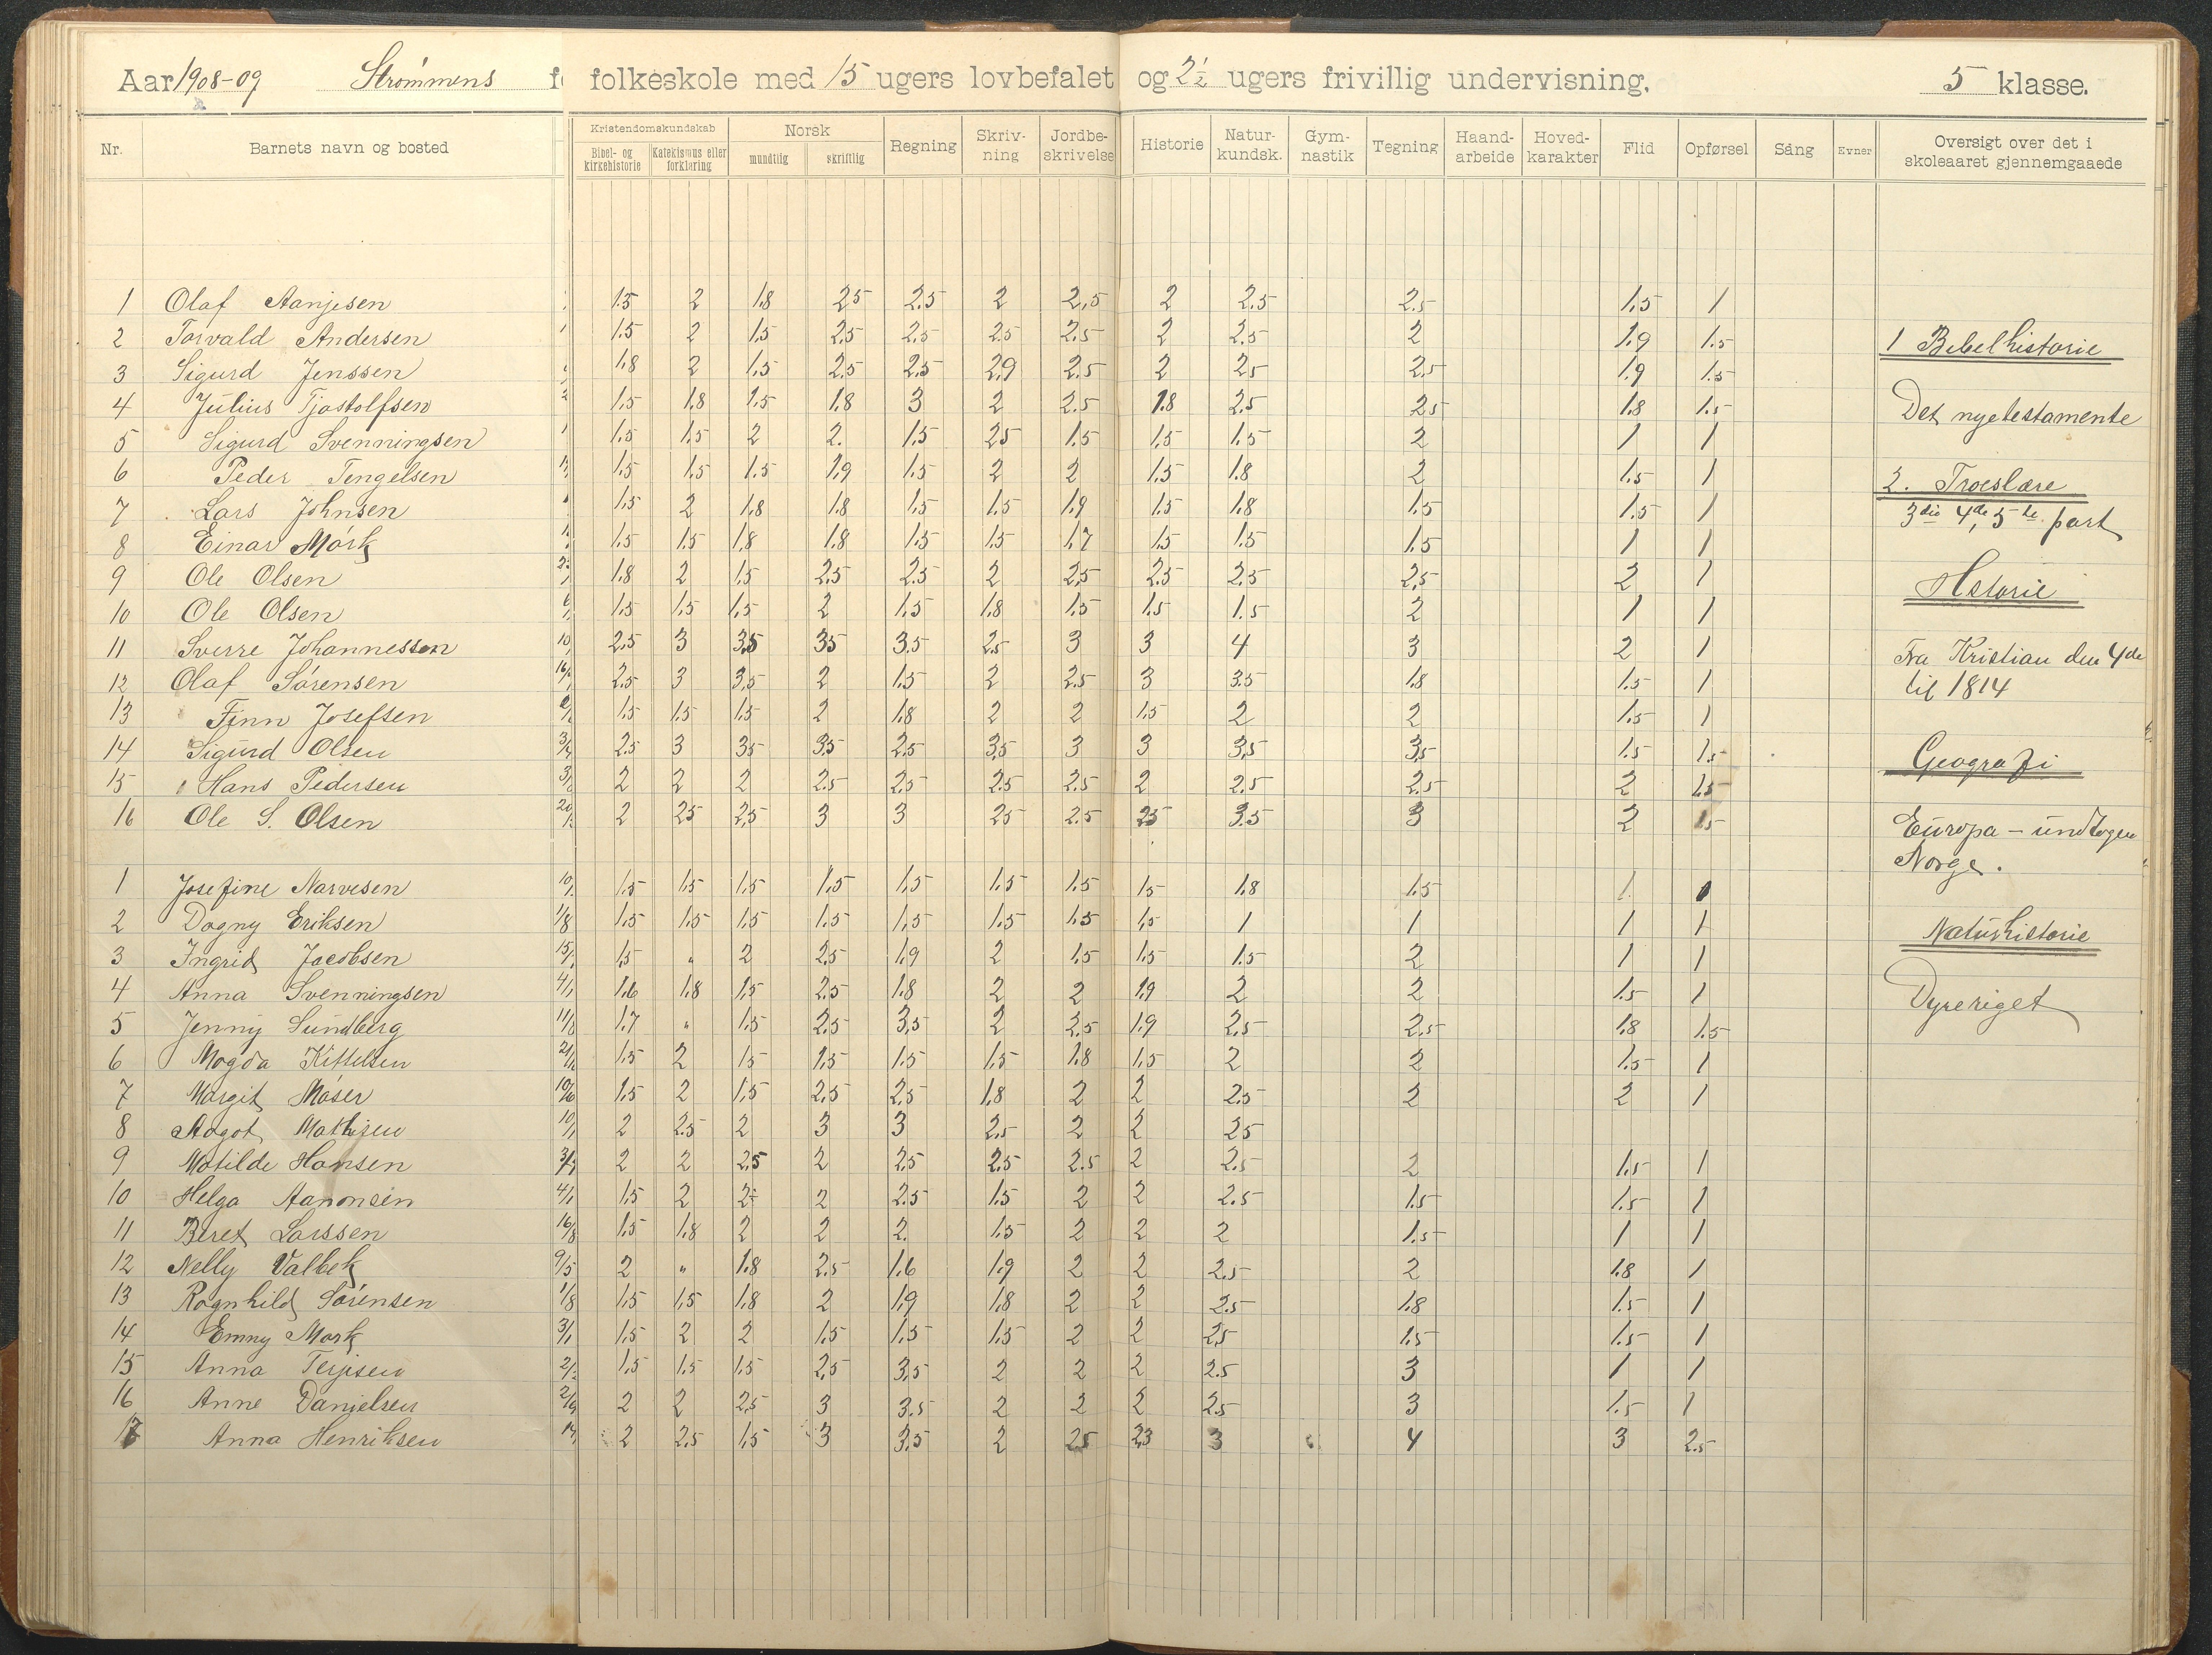 Aar 1908-09 Strømmens folkeskole med 15 ugers lovbefalet og 2 1/2 ugers frivillig undervisning. 5 klasse.
Nr. Barnets navn og bosted Kristendomskundskab Bibel- og kirkehistorie Katekismus eller forklaring Norsk mundtlig skriftlig Regning Skriv-ning Jordbe-skrivelse Historie Natur-kundsk. Gym-nastik Tegning Haand-arbeide Hoved-karakter Flid Opførsel Sång Evner Oversigt over det i skoleaaret gjennemgaaede
1 Olaf Aanjesen 1.5 2 1.8 2.5 2.5 2 2,5 2 2.5 2.5 1.5 1
2 Torvald Andersen 1.5 2 1.5 2.5 2.5 2.5 2.5 2 2.5 2 1.9 1.5
3 Sigurd Jenssen 1.8 2 1.5 2.5 2.5 2.9 2.5 2 2.5 2.5 1.9 1.5
4 Julius Tjostolfsen 1.5 1.8 1.5 1.8 3 2 2.5 1.8 2.5 2.5 1.8 1.5
5 Sigurd Svenningsen 1.5 1.5 2 2. 1.5 2.5 1.5 1.5 1.5 2 1 1
6 Peder Tengelsen 1.5 1.5 1.5 1.9 1.5 2 2 1.5 1.8 2 1.5 1
7 Lars Johnsen 1.5 2 1.8 1.8 1.5 1.5 1.9 1.5 1.8 1.5 1.5 1
8 Einar Mørk 1.5 1.5 1.8 1.8 1.5 1.5 1.7 1.5 1.5 1.5 1 1
9 Ole Olsen 1.8 2 1.5 2.5 2.5 2 2.5 2.5 2.5 2.5 2 1
10 Ole Olsen 1.5 1.5 1.5 2 1.5 1.8 1.5 1.5 1.5 2 1 1
11 Sverre Johannessen 2.5 3 3.5 3.5 3.5 2.5 3 3 4 3 2 1
12 Olaf Sørensen 2.5 3 3.5 2 1.5 2 2.5 3 3.5 1.8 1.5 1
13 Finn Josefsen 1.5 1.5 1.5 2 1.8 2 2 1.5 2 2 1.5 1
14 Sigurd Olsen 2.5 3 3.5 3.5 2.5 3.5 3 3 3.5 3.5 1.5 1.5
15 Hans Pedersen 2 2 2 2.5 2.5 2.5 2.5 2 2.5 2.5 2 1.5
16 Ole S. Olsen 2 2.5 2.5 3 3 2.5 2.5 2.5 3.5 3 2 1.5
1 Josefine Narvesen 1.5 1.5 1.5 1.5 1.5 1.5 1.5 1.5 1.8 1.5 1 1
2 Dagny Eriksen 1/8 1.5 1.5 1.5 1.5 1.5 1.5 1.5 1.5 1 1 1 1
3 Ingrid Jacobsen 1.5 " 2 2.5 1.9 2 1.5 1.5 1.5 2 1 1
4 Anna Svenningsen 4/1 1.6 1.8 1.5 2.5 1.8 2 2 1.9 2 2 1.5 1
5 Jenny Sundberg 11/8 1.7 " 1.5 2.5 3.5 2 2.5 1.9 2.5 2.5 1.8 1.5
6 Magda Kittelsen 1.5 2 1.5 1.5 1.5 1.5 1.8 1.5 2 2 1.5 1
7 Margit Møser 10/6 1.5 2 1.5 2.5 2.5 1.8 2 2 2.5 2 2 1
8 Aagot Mathisen 10/1 2 2.5 2 3 3 2.5 2 2 2.5
9 Matilde Hansen 2 2 2.5 2 2.5 2.5 2.5 2 2.5 2 1.5 1
10 Helga Aanonsen 4/1 1.5 2 2 2 2.5 1.5 2 2 2.5 1.5 1.5 1
11 Beret Larssen 16/8 1.5 1.8 2 2 2. 1.5 2 2 2 1.5 1 1
12 Nelly Valbek 9/5 2 " 1.8 2.5 1.6 1.9 2 2 2.5 2 1.8 1
13 Ragnhild Sørensen 1/8 1.5 1.5 1.8 2 1.9 1.8 2 2 2.5 1.8 1.5 1
14 Emmy Mørk 3/1 1.5 2 2 1.5 1.5 1.5 2 2 2.5 1.5 1.5 1
15 Anna Terjesen 1.5 1.5 1.5 2.5 3.5 2 2 2 2.5 3 1 1
16 Anne Danielsen 2/9 2 2 2.5 3 3.5 2 2 2 2.5 3 1.5 1
17 Anna Henriksen 2 2.5 1.5 3 3.5 2 2.5 2.3 3 4 3 2.5
1 Bibelhistorie
Det nyetestamente
2. Troeslære
3die 4de, 5te part
Hstorie
Fra Kristian den 4de
til 1814
Geografi
Europa - undtagen
Norge.
Naturhistorie
Dyreriget